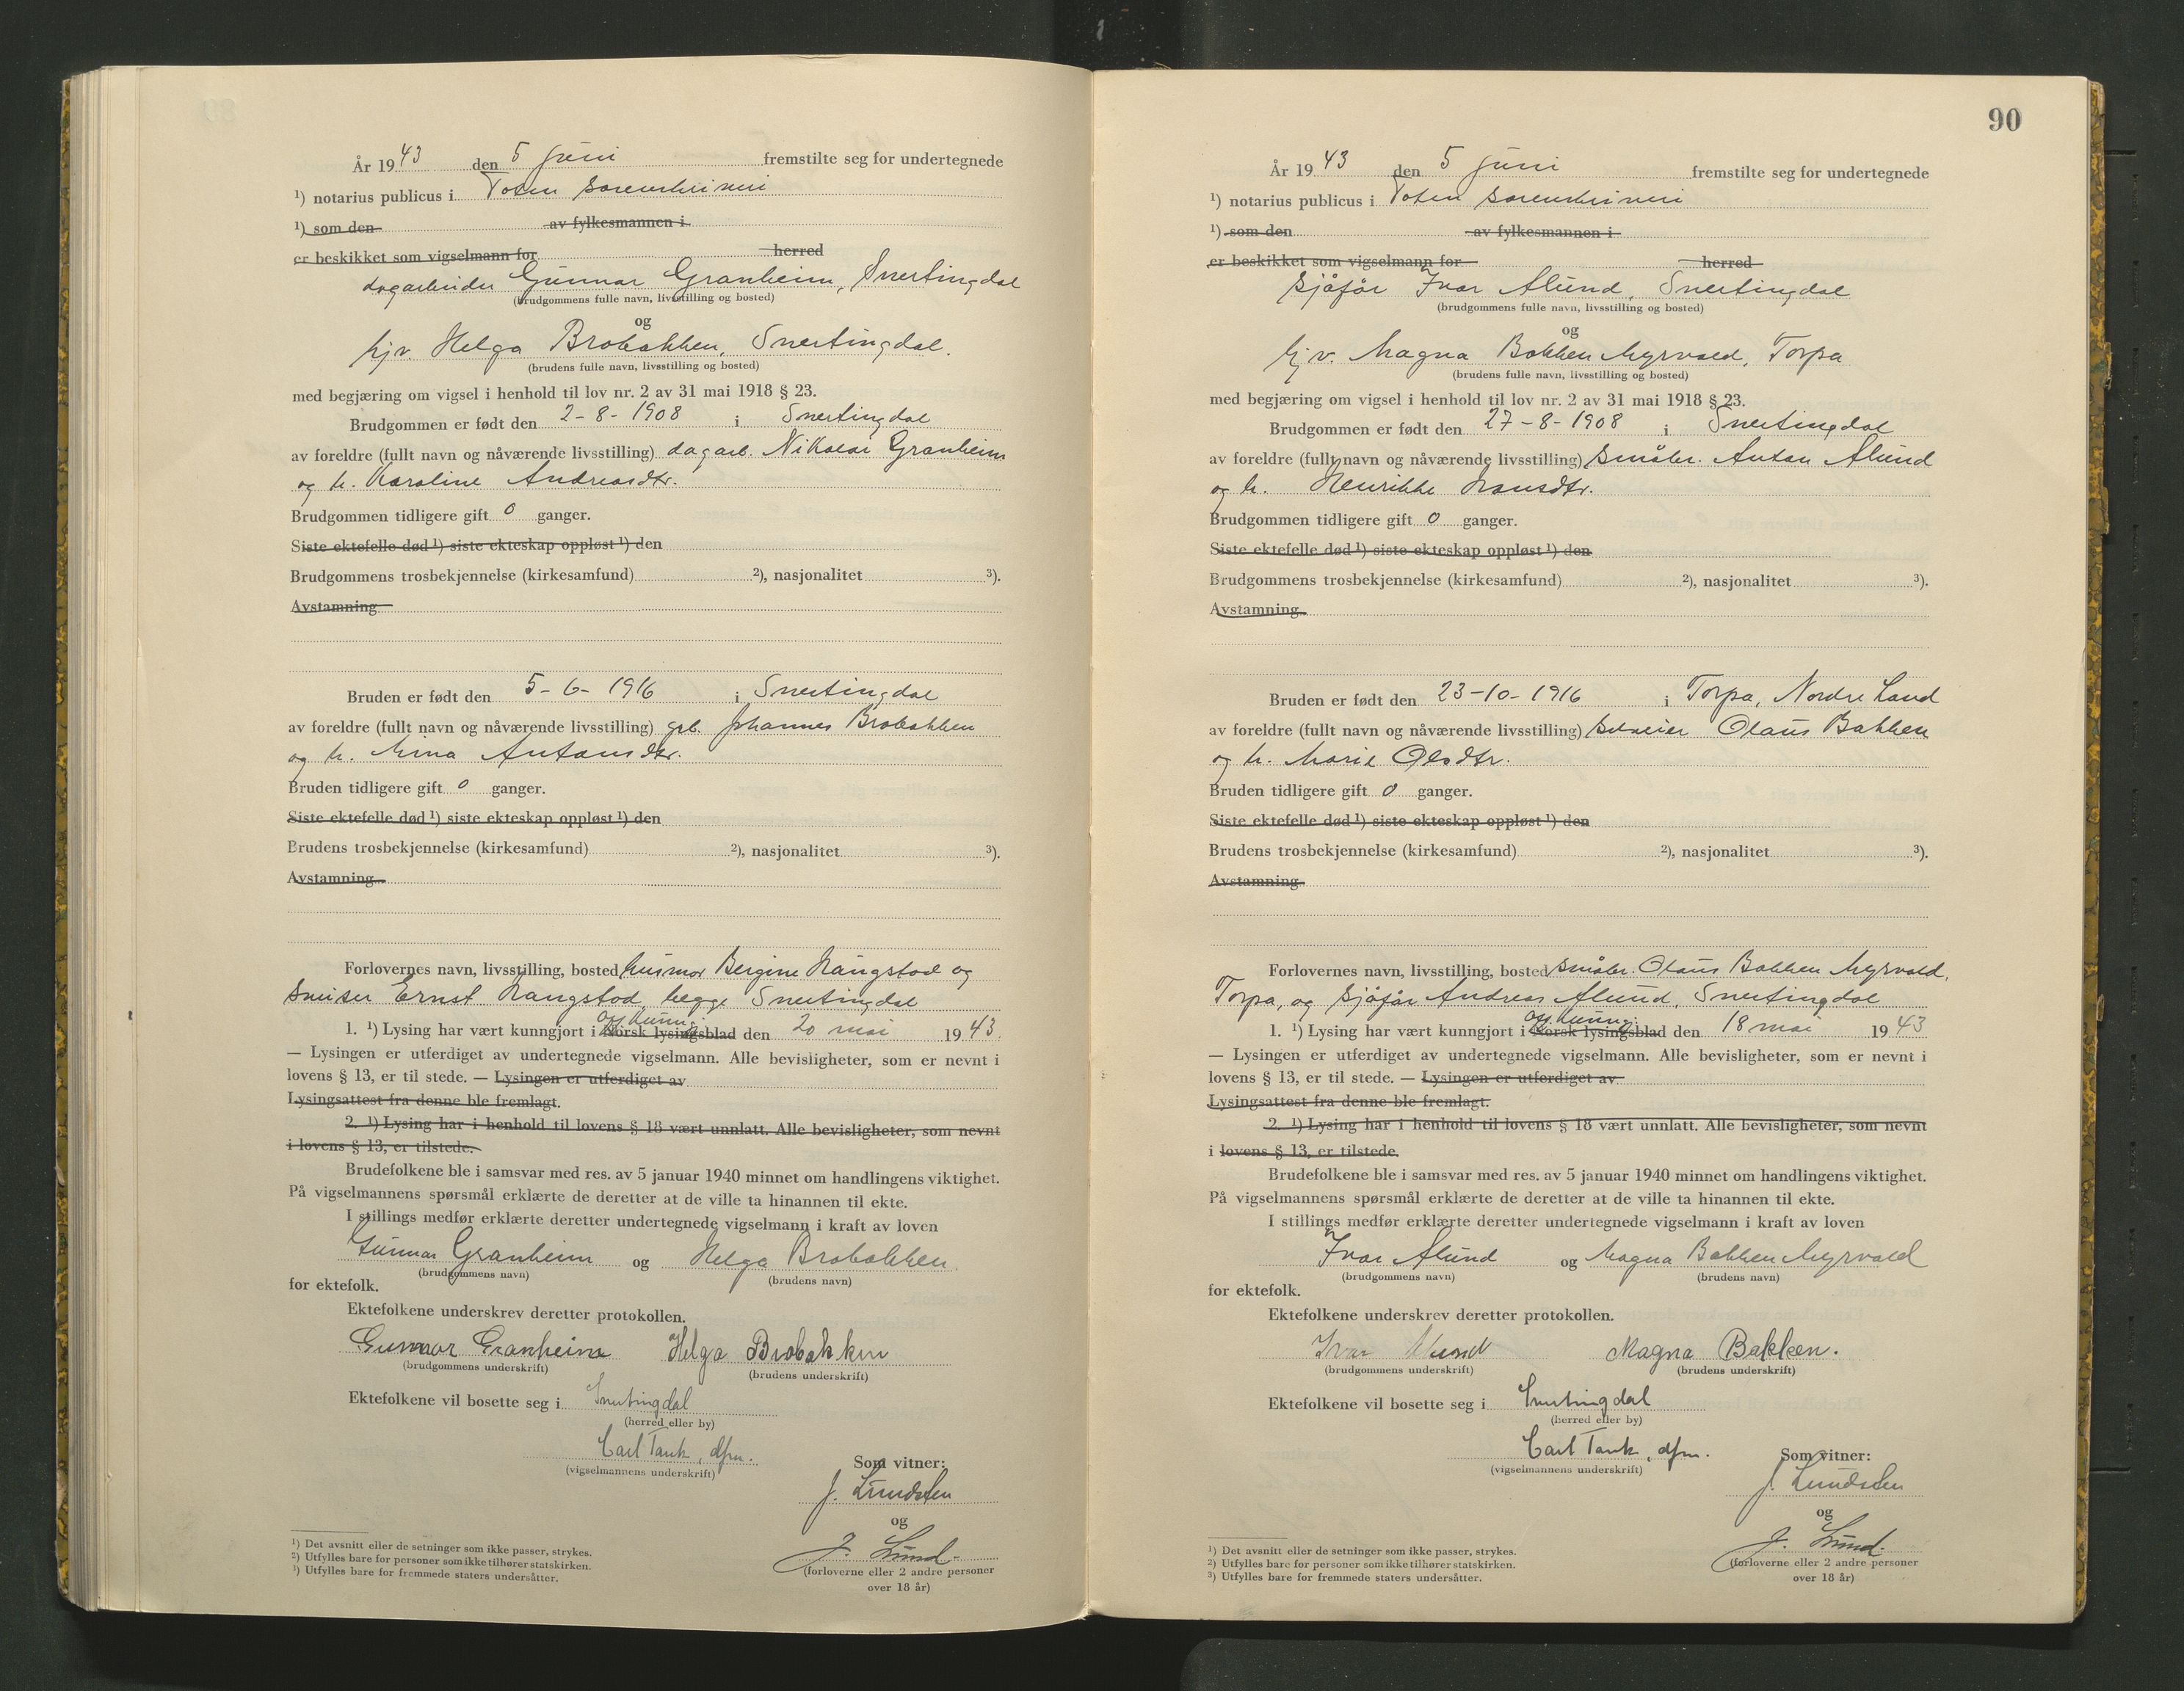 År 1943 den 5 juni fremstilte seg for undertegnede
¹) notarius publicus i Toten sorenskriveri
¹) som den av fylkesmannen i
er beskikket som vigselmann for herred
dagarbeider Gunnar Granheim, Snertingdal
(brudgommens fulle navn, livsstilling og bosted)
og
hjv. Helga Brobakken, Snertingdal.
(brudens fulle navn, livsstilling og bosted)
med begjæring om vigsel i henhold til lov nr. 2 av 31 mai 1918 § 23.
Brudgommen er født den 2-8-1908 i Snertingdal
av foreldre (fullt navn og nåværende livsstilling) dagarb. Nikolai Granheim
og h. Karoline Andreasdtr.
Brudgommen tidligere gift 0 ganger.
Siste ektefelle død ¹) siste ekteskap oppløst ¹) den
Brudgommens trosbekjennelse (kirkesamfund) ²), nasjonalitet ³).
Avstamning
Bruden er født den 5-6-1916 i Snertingdal
av foreldre (fullt navn og nåværende livsstilling) grb. Johannes Brobakken
og h. Mina Antonsdtr.
Bruden tidligere gift 0 ganger.
Siste ektefelle død ¹) siste ekteskap oppløst ¹) den
Brudens trosbekjennelse (kirkesamfund) ²), nasjonalitet ³).
Avstamning
Forlovernes navn, livsstilling, bosted husmor Bergine Haugstad og
Ernst Haugstad, begge Snertingdal
off. kunng.
1. ¹) Lysing har vært kunngjort i Norsk lysingsblad den 20 mai 1943.
— Lysingen er utferdiget av undertegnede vigselmann. Alle bevisligheter, som er nevnt i
lovens § 13, er til stede. — Lysingen er utferdiget av
Lysingsattest fra denne ble fremlagt.
2. ¹) Lysing har i henhold til lovens § 18 vært unnlatt. Alle bevisligheter, som nevnt
i lovens § 13, er tilstede.
Brudefolkene ble i samsvar med res. av 5 januar 1940 minnet om handlingens viktighet.
På vigselmannens spørsmål erklærte de deretter at de ville ta hinannen til ekte.
I stillings medfør erklærte deretter undertegnede vigselmann i kraft av loven
Gunnar Granheim og Helga Brobakken.
(brudgommens navn) (brudens navn)
for ektefolk.
Ektefolkene underskrev deretter protokollen.
Gunnar Granheim Helga Brobakken
(brudgommens underskrift) (brudens underskrift)
Ektefolkene vil bosette seg i Snertingdal
(herred eller by)
Carl Tank, dfm.
(vigselmannens underskrift)
Som vitner:
J. Lundsten
og
J. Lund.
(forloverne eller 2 andre personer
over 18 år)
¹) Det avsnitt eller de setninger som ikke passer, strykes.
²) Utfylles bare for personer som ikke tilhører statskirken.
³) Utfylles bare for fremmede staters undersåtter.
90
År 1943 den 5 juni fremstilte seg for undertegnede
¹) notarius publicus i Toten sorenskriveri
¹) som den av fylkesmannen i
er beskikket som vigselmann for herred
Sjåfør Ivar Alund, Snertingdal
(brudgommens fulle navn, livsstilling og bosted)
og
hjv. Magna Bakken Myrvold, Torpa
(brudens fulle navn, livsstilling og bosted)
med begjæring om vigsel i henhold til lov nr. 2 av 31 mai 1918 § 23.
Brudgommen er født den 27-8-1908 i Snertingdal
av foreldre (fullt navn og nåværende livsstilling) småbr. Anton Alund
og h. Henrikke Hansdtr.
Brudgommen tidligere gift 0 ganger.
Siste ektefelle død ¹) siste ekteskap oppløst ¹) den
Brudgommens trosbekjennelse (kirkesamfund) ²), nasjonalitet ³).
Avstamning
Bruden er født den 23-10-1916 i Torpa, Nordre Land
av foreldre (fullt navn og nåværende livsstilling) selveier Olaus Bakken
og h. Marie Olsdtr.
Bruden tidligere gift 0 ganger.
Siste ektefelle død ¹) siste ekteskap oppløst ¹) den
Brudens trosbekjennelse (kirkesamfund) ²), nasjonalitet ³).
Avstamning
Forlovernes navn, livsstilling, bosted småbr. Olaus Bakken Myrvold,
Torpa, og sjåfør Andreas Alund, Snertingdal
off. kunng.
1. ¹) Lysing har vært kunngjort i Norsk lysingsblad den 18 mai 1943
— Lysingen er utferdiget av undertegnede vigselmann. Alle bevisligheter, som er nevnt i
lovens § 13, er til stede. — Lysingen er utferdiget av
Lysingsattest fra denne ble fremlagt.
2. ¹) Lysing har i henhold til lovens § 18 vært unnlatt. Alle bevisligheter, som nevnt
i lovens § 13, er tilstede.
Brudefolkene ble i samsvar med res. av 5 januar 1940 minnet om handlingens viktighet.
På vigselmannens spørsmål erklærte de deretter at de ville ta hinannen til ekte.
I stillings medfør erklærte deretter undertegnede vigselmann i kraft av loven
Ivar Alund og Magna Bakken Myrvold
(brudgommens navn) (brudens navn)
for ektefolk.
Ektefolkene underskrev deretter protokollen.
Ivar Alund Magna Bakken.
(brudgommens underskrift) (brudens underskrift)
Ektefolkene vil bosette seg i Snertingdal
(herred eller by)
Carl Tank, dfm.
(vigselmannens underskrift)
Som vitner:
J. Lundsten
og
J. Lund.
(forloverne eller 2 andre personer
over 18 år)
¹) Det avsnitt eller de setninger som ikke passer, strykes.
²) Utfylles bare for personer som ikke tilhører statskirken.
³) Utfylles bare for fremmede staters undersåtter.